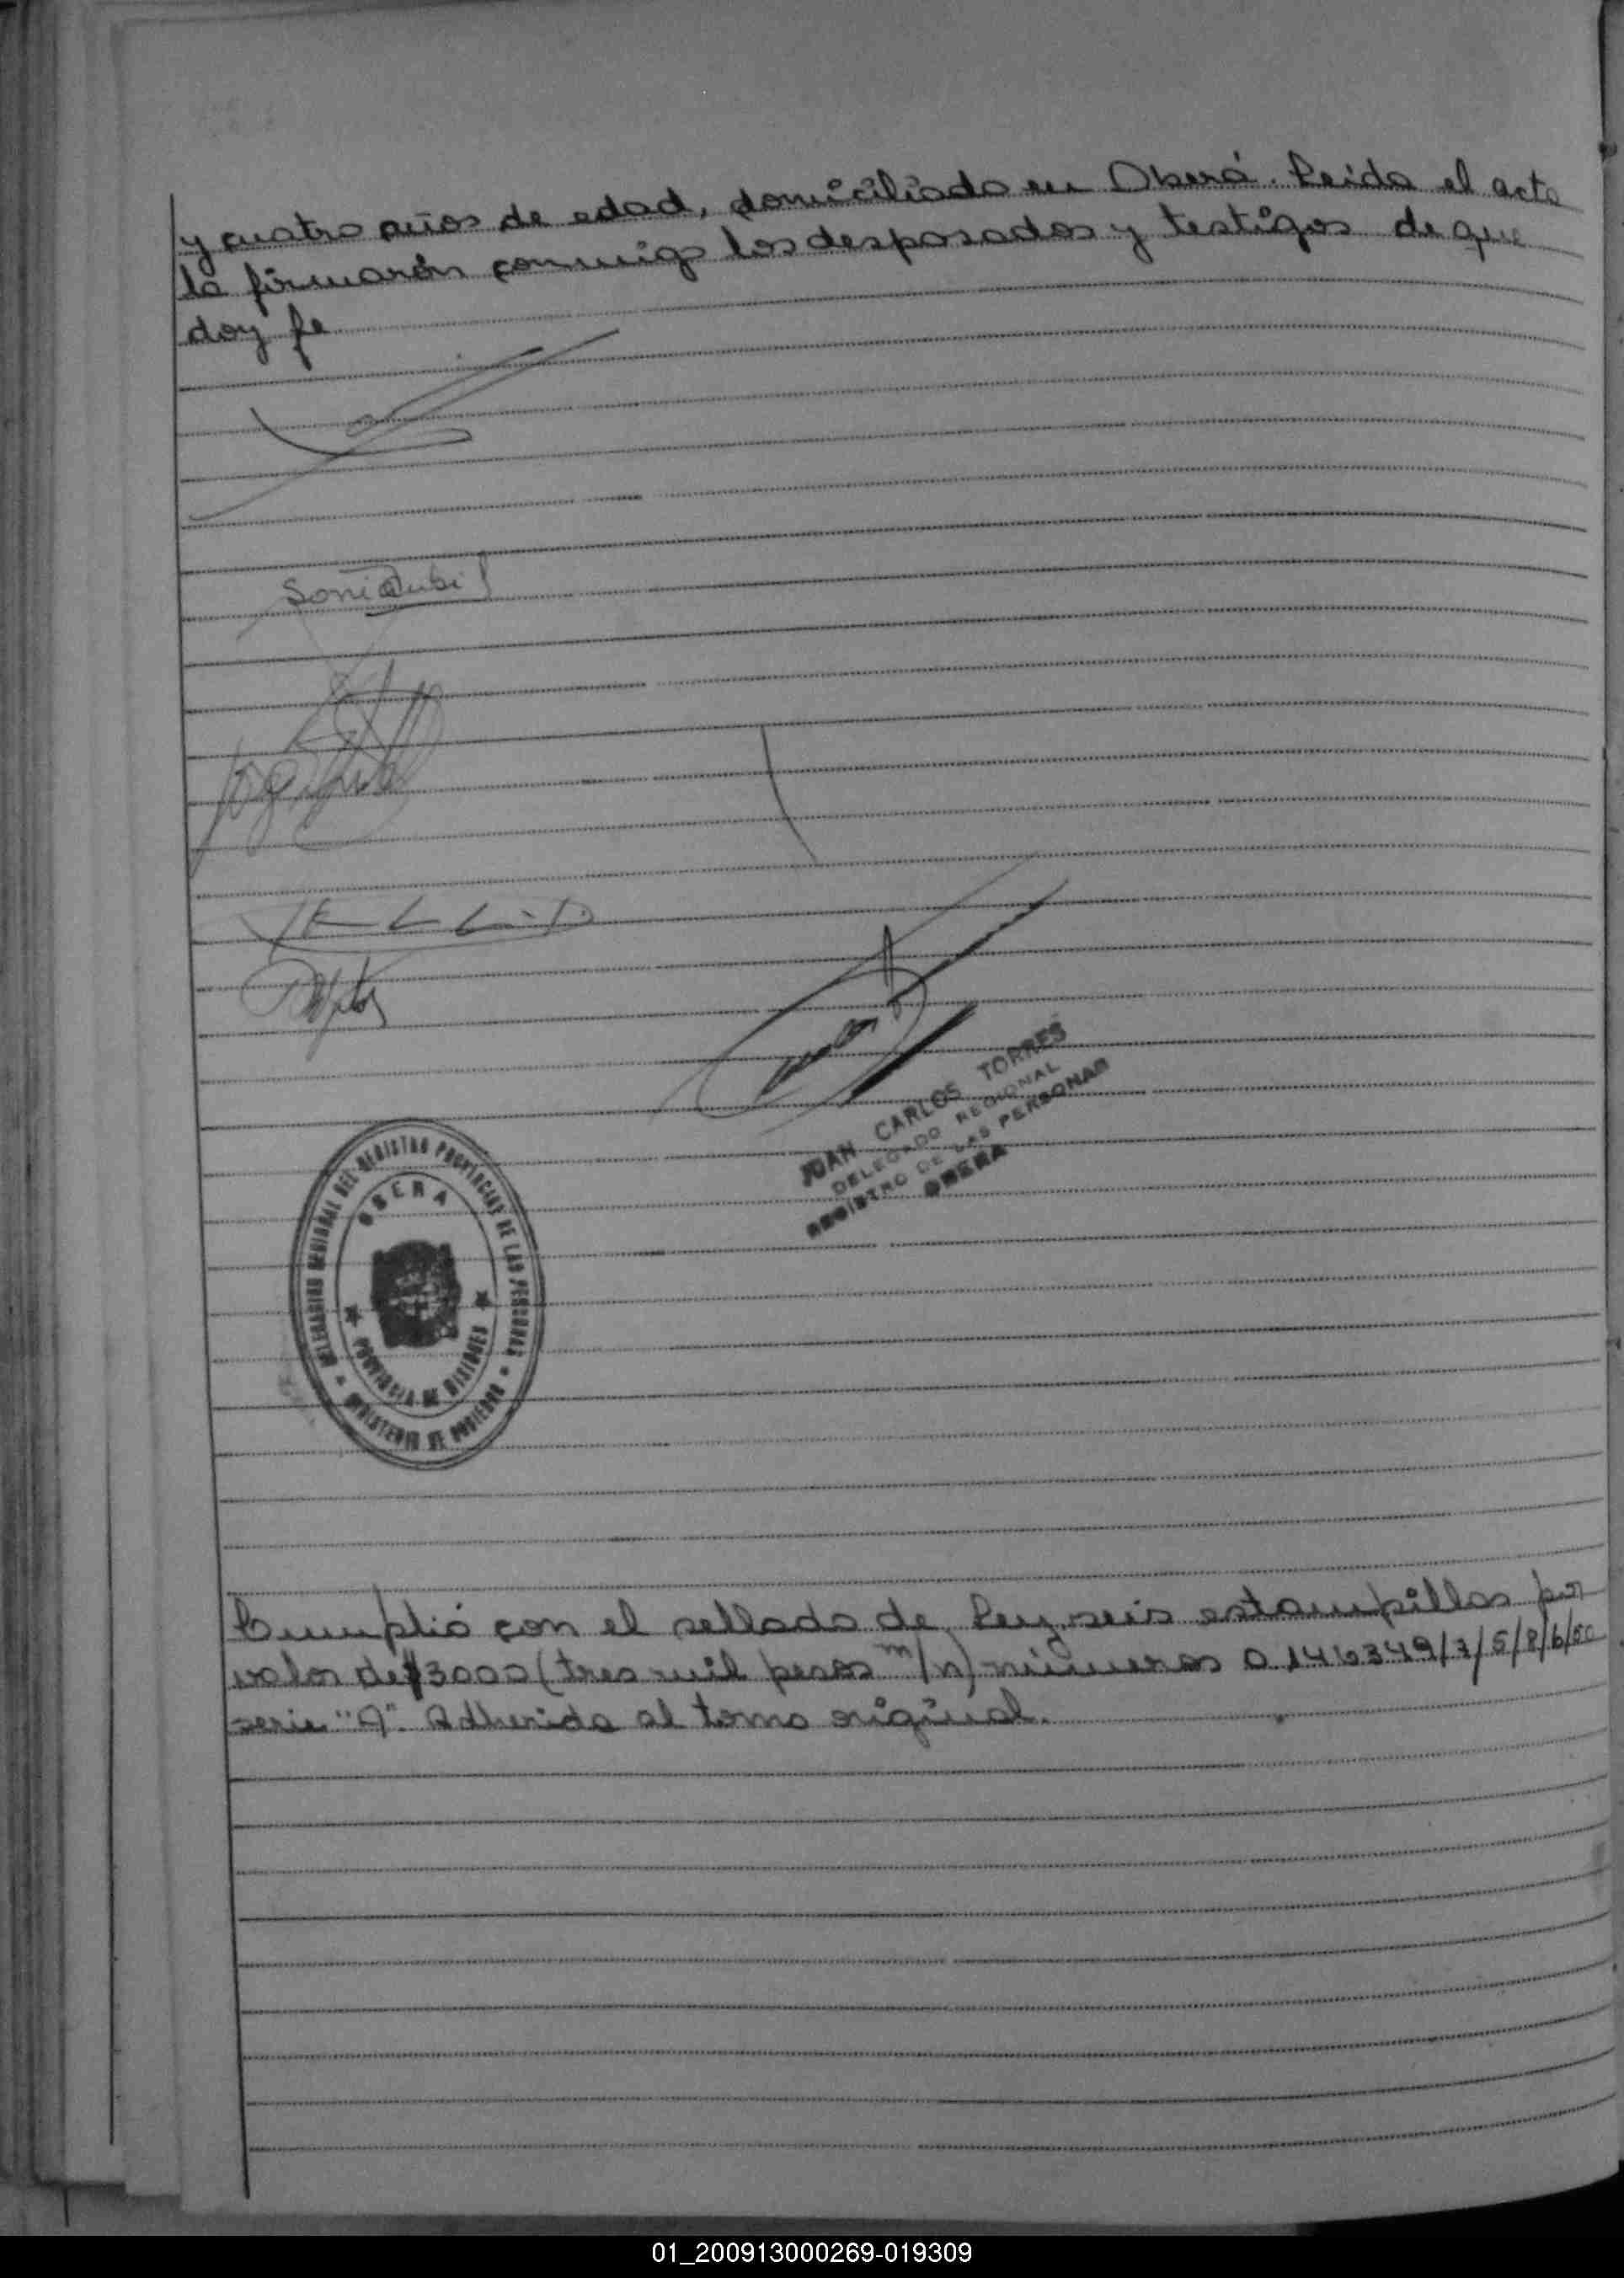 y cuatro años de edad, domiciliado en Oberá. Leida el acta
la firmarón conmigo los desposados y testigos de que
doy fe
Sonia
JUAN CARLOS TORRES
DELEGADO REGIONAL
REGISTRO DE LAS PERSONAS
OBERA
DELEGACION REGIONAL DEL REGISTRO PROVINCIAL DE LAS PERSONAS
OBERA
PROVINCIA DE MISIONES
MINISTERIO DE GOBIERNO
Cumplió con el sellado de Ley, seis estampillas por
valor de $3000 (tres mil pesos m/n) números 0146349/7/5/8/6/50
serie "A". Adherida al tomo original.
01_200913000269-019309